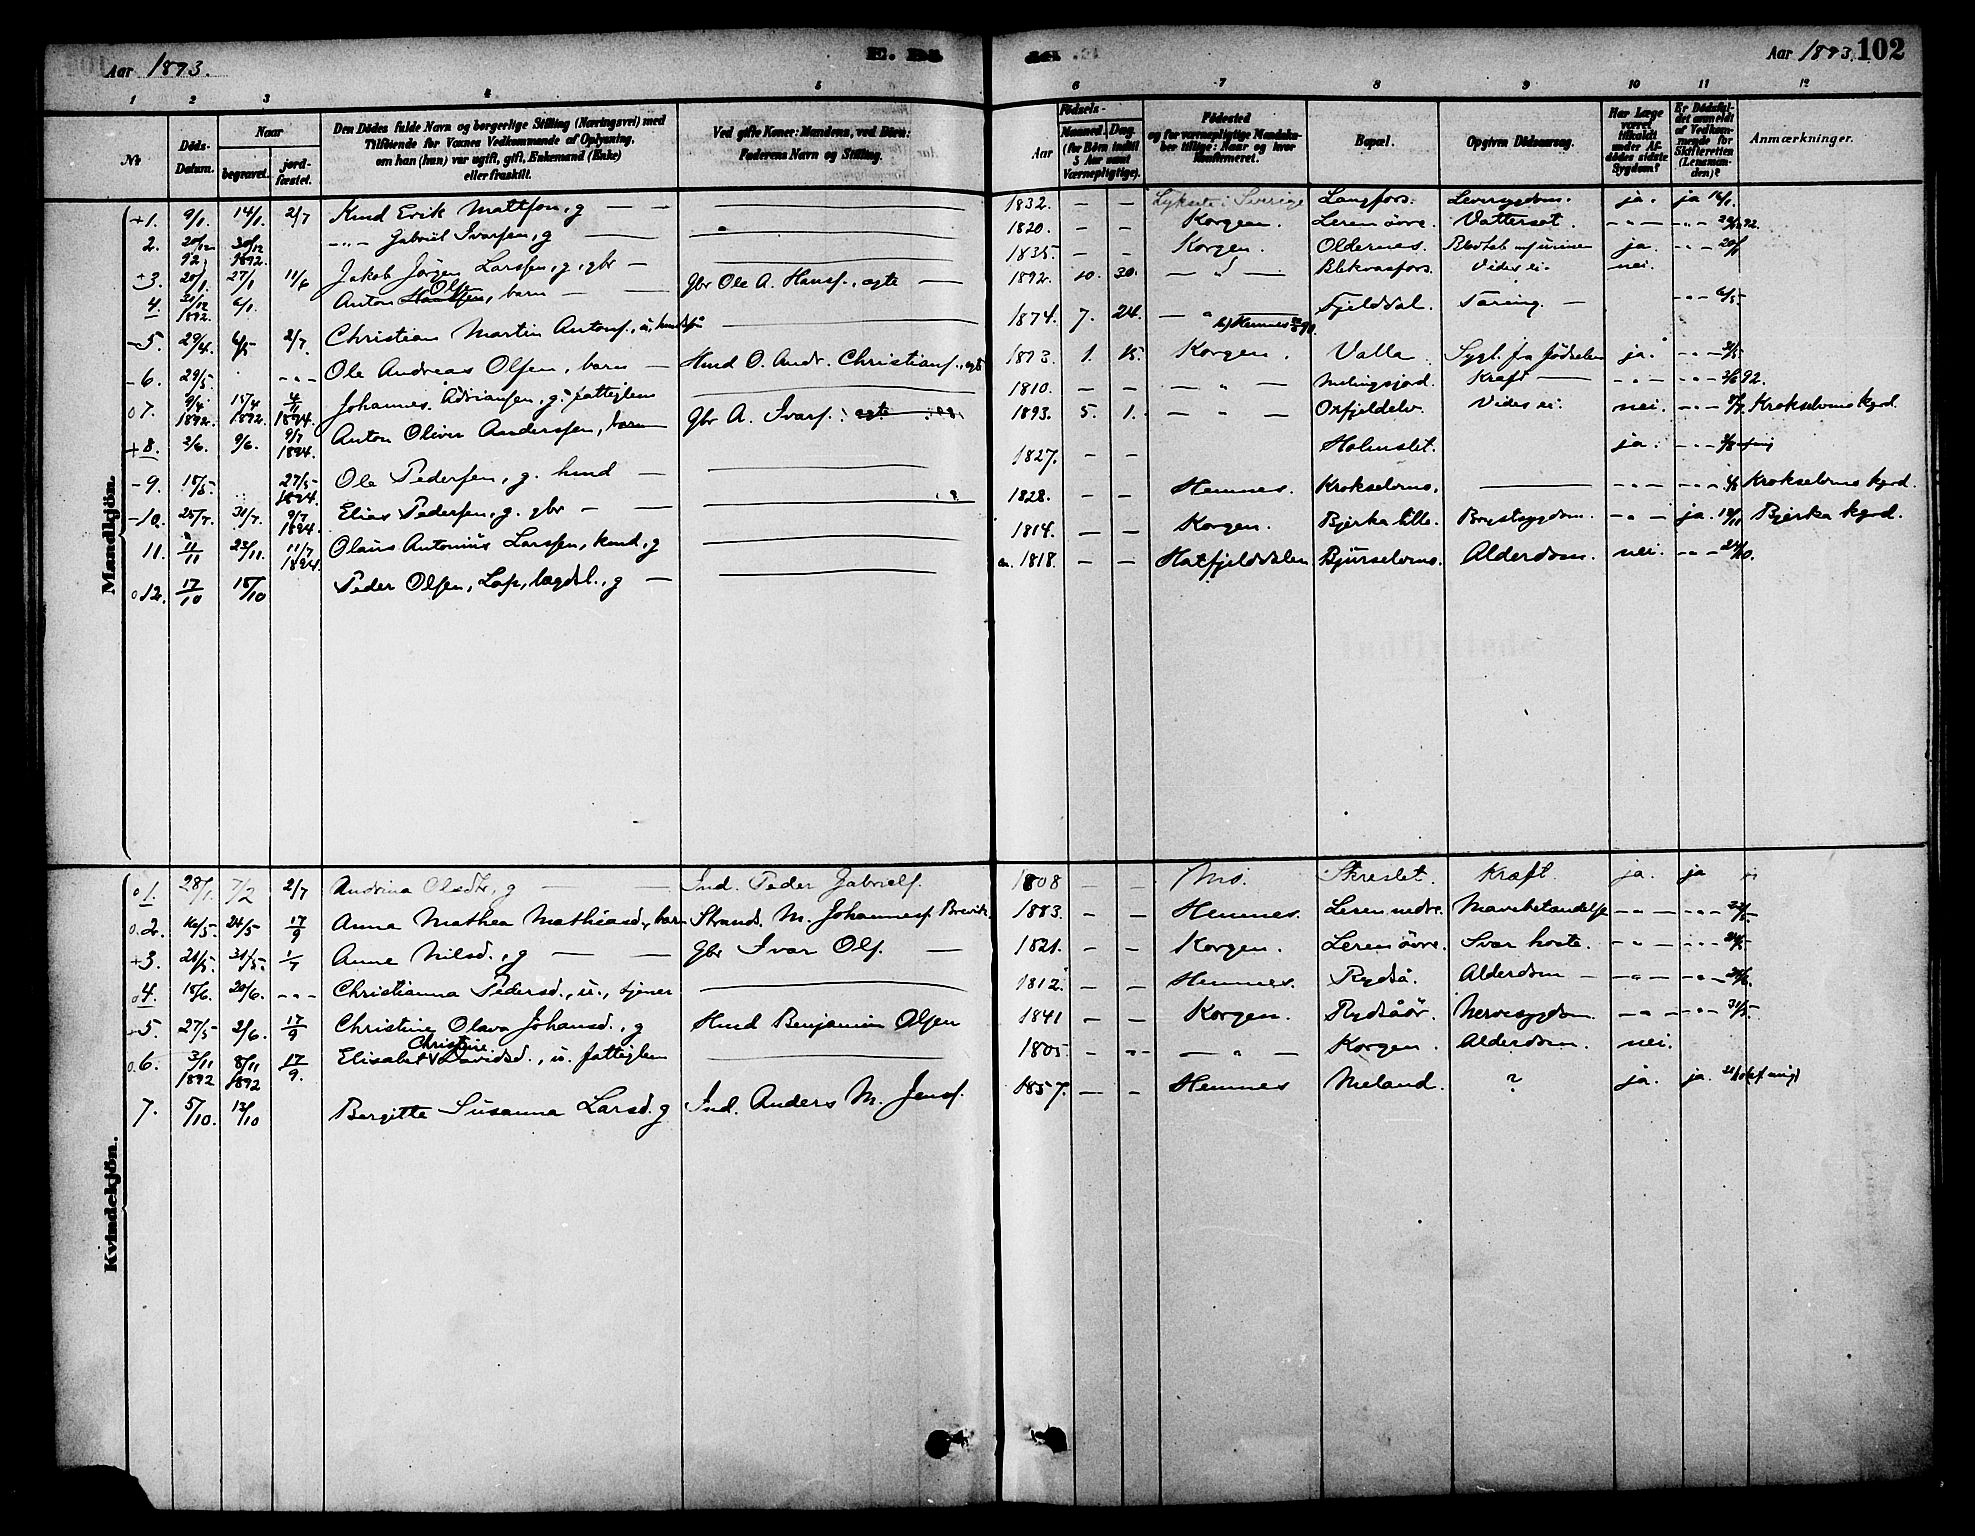 Aar 1893.
Aar 1893. 102
1 2 3 4 5 6 7 8 9 10 11 12
No
Döds-Datum.
Naar
begravet.
jordfæstet.
Den Dödes fulde Navn og borgerlige Stilling (Næringsvei) med
Tilföiende for Voxnes Vedkommende af Oplysning,
om han (hun) var ugift, gift, Enkemand (Enke)
eller fraskilt.
Ved gifte Koner: Mandens, ved Börn:
Faderens Navn og Stilling.
Födsels-
Aar
Maaned
(for Börn indtil
5 Aar samt
Værnepligtige).
Dag
Födested
og for værnepligtige Mandskaber tillige: Naar og hvor
Konfirmeret.
Bopæl.
Opgiven Dödsaarsag.
Har Læge
været
tilkaldt
under Afdödes sidste
Sygdom?
Er Dödsfaldet anmeldt
af Vedkommende for
Skifteretten
(Lensmanden)?
Anmærkninger.
Mandkjön.
+1. 9/1. 14/1. 2/7 Knud Erik Mattson, g — — 1832. — — i Sverige Langfors. Leversygdom. ja. ja 16/1.
2. 20/12 92 30/12 1892. -"- Gabriel Ivarsen, g — 1820. — — Korgen. Leren övre. Vattersot. -"- -"-
+3. 20/1. 27/1 11/6 Jakob Jörgen Larssen, g, gbr — 1835. — — Korgen. Oldernes. ja. -"-
4. 31/12 1892. 6/1. Anton Ols, barn — Gbr Ole A. Hansf., ægte — 1892. 10. 30. — " — Blekvasfors. Vides ei. nei.
-5. 29/4. 6/5 2/7. Christian Martin Antonf., u, 1874. 7. 24. — " Hemnes Fjelddal. Tæring — -"-
-6. 29/5. -"- Ole Andreas Olsen, barn — Hmd O. Andr. Christianf., ægte 1893. 1. 15. Korgen. Valla. Sygl. fra födselen ja. -"-
07. 9/4 1892. 15/4 1892. 1894. Johannes Adriansen, g. fattiglem 1810. — — — " — Kræft — -"- -"-
+8. 2/6. 9/6. 9/7 1894. Anton Oliver Anderssen, barn Gbr A. Ivarf. ægte 1893. 5. 1. — " — Orfjeldelv. Vides ei. nei. -"- Krokselvens kgrd.
-9. 15/5. 27/5 1894. Ole Pedersen, g. hmd — 1827. — — Holmslet. ja. -"-
-10. 25/7. 31/7. 9/7 1894. Elias Pedersen, g. gbr — 1828. — — Hemnes. Krokselvens. — -"- -"- Krokselvens kgrd.
11. 11/11 23/11. 11/7 1894. Olaus Antonius Larssen, hmd, g 1814. — — Korgen. Bjerka lille. Brystsygdom. -"- ja. Bjerka kgrd.
012. 17/10 18/10 Peder Olsen, Lap, lægdsl., g — 1818. — — Hatfjelddalen Bjurselvens. Alderdom. nei. -"-
Kvindekjön.
01. 28/1. 7/2 2/7 Andrina Olsdtr, g — Ind. Peder Gabrielf. 1808 — — Mo. Skreslet. Kræft. ja. ja
0.2. 16/5. 24/5 17/9 Anna Mathea Mathiasd., barn Strands. M. Johannesf. Brevik 1883. — — Hemnes. Leren nedre. Mavebetændelse -"- -"-
+3. 21/5. 31/5. 1/7 Anne Nilsd., g — Gbr Ivar Olf. — 1821. — — Korgen. Leren övre. Svar hoste. -"- -"-
04. 15/6. 20/6. -"- Christianna Pedersd., u., tjener 1812. — — Hemnes. Rydså. Alderdom — -"- -"-
5. 27/5 2/6. 17/9 Christine Olava Johansd., g Hmd Benjamin Olsen 1841 — — Korgen. Rydsåör. Nervesygdom. -"- -"- 31/5
0.6. 3/11 1892 8/11 1892 17/9. Elisabet Christine Davidsd., u. fattiglem 1805. — — — " — Korgen. Alderdom. nei.
7. 5/10. 13/10 Bergitte Susanna Larsd. g Ind. Anders M. Jensf. 1857. — — Hemnes Meland. ? ja. ja.